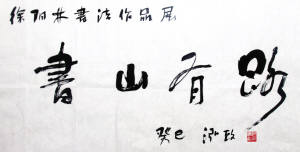 徐阳林書法作品展
書山有路
癸巳 泓政